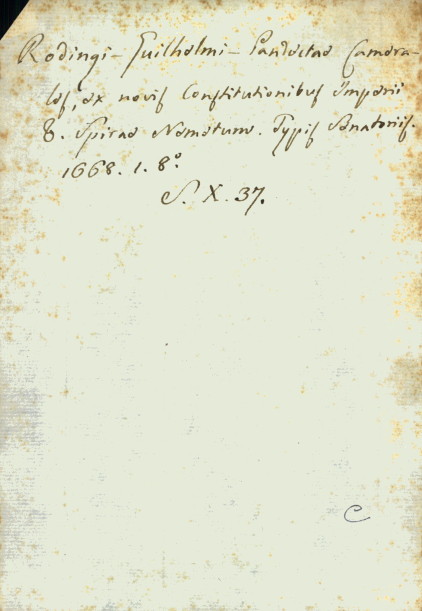 Rodingi – Guilhelmi – Pandectae Camera-
les, ex novis Constitutionibus Imperii
8. Spirae Nemetum. Typis Senatoriis.
1668. 1. 8°.
S. X. 37.
C